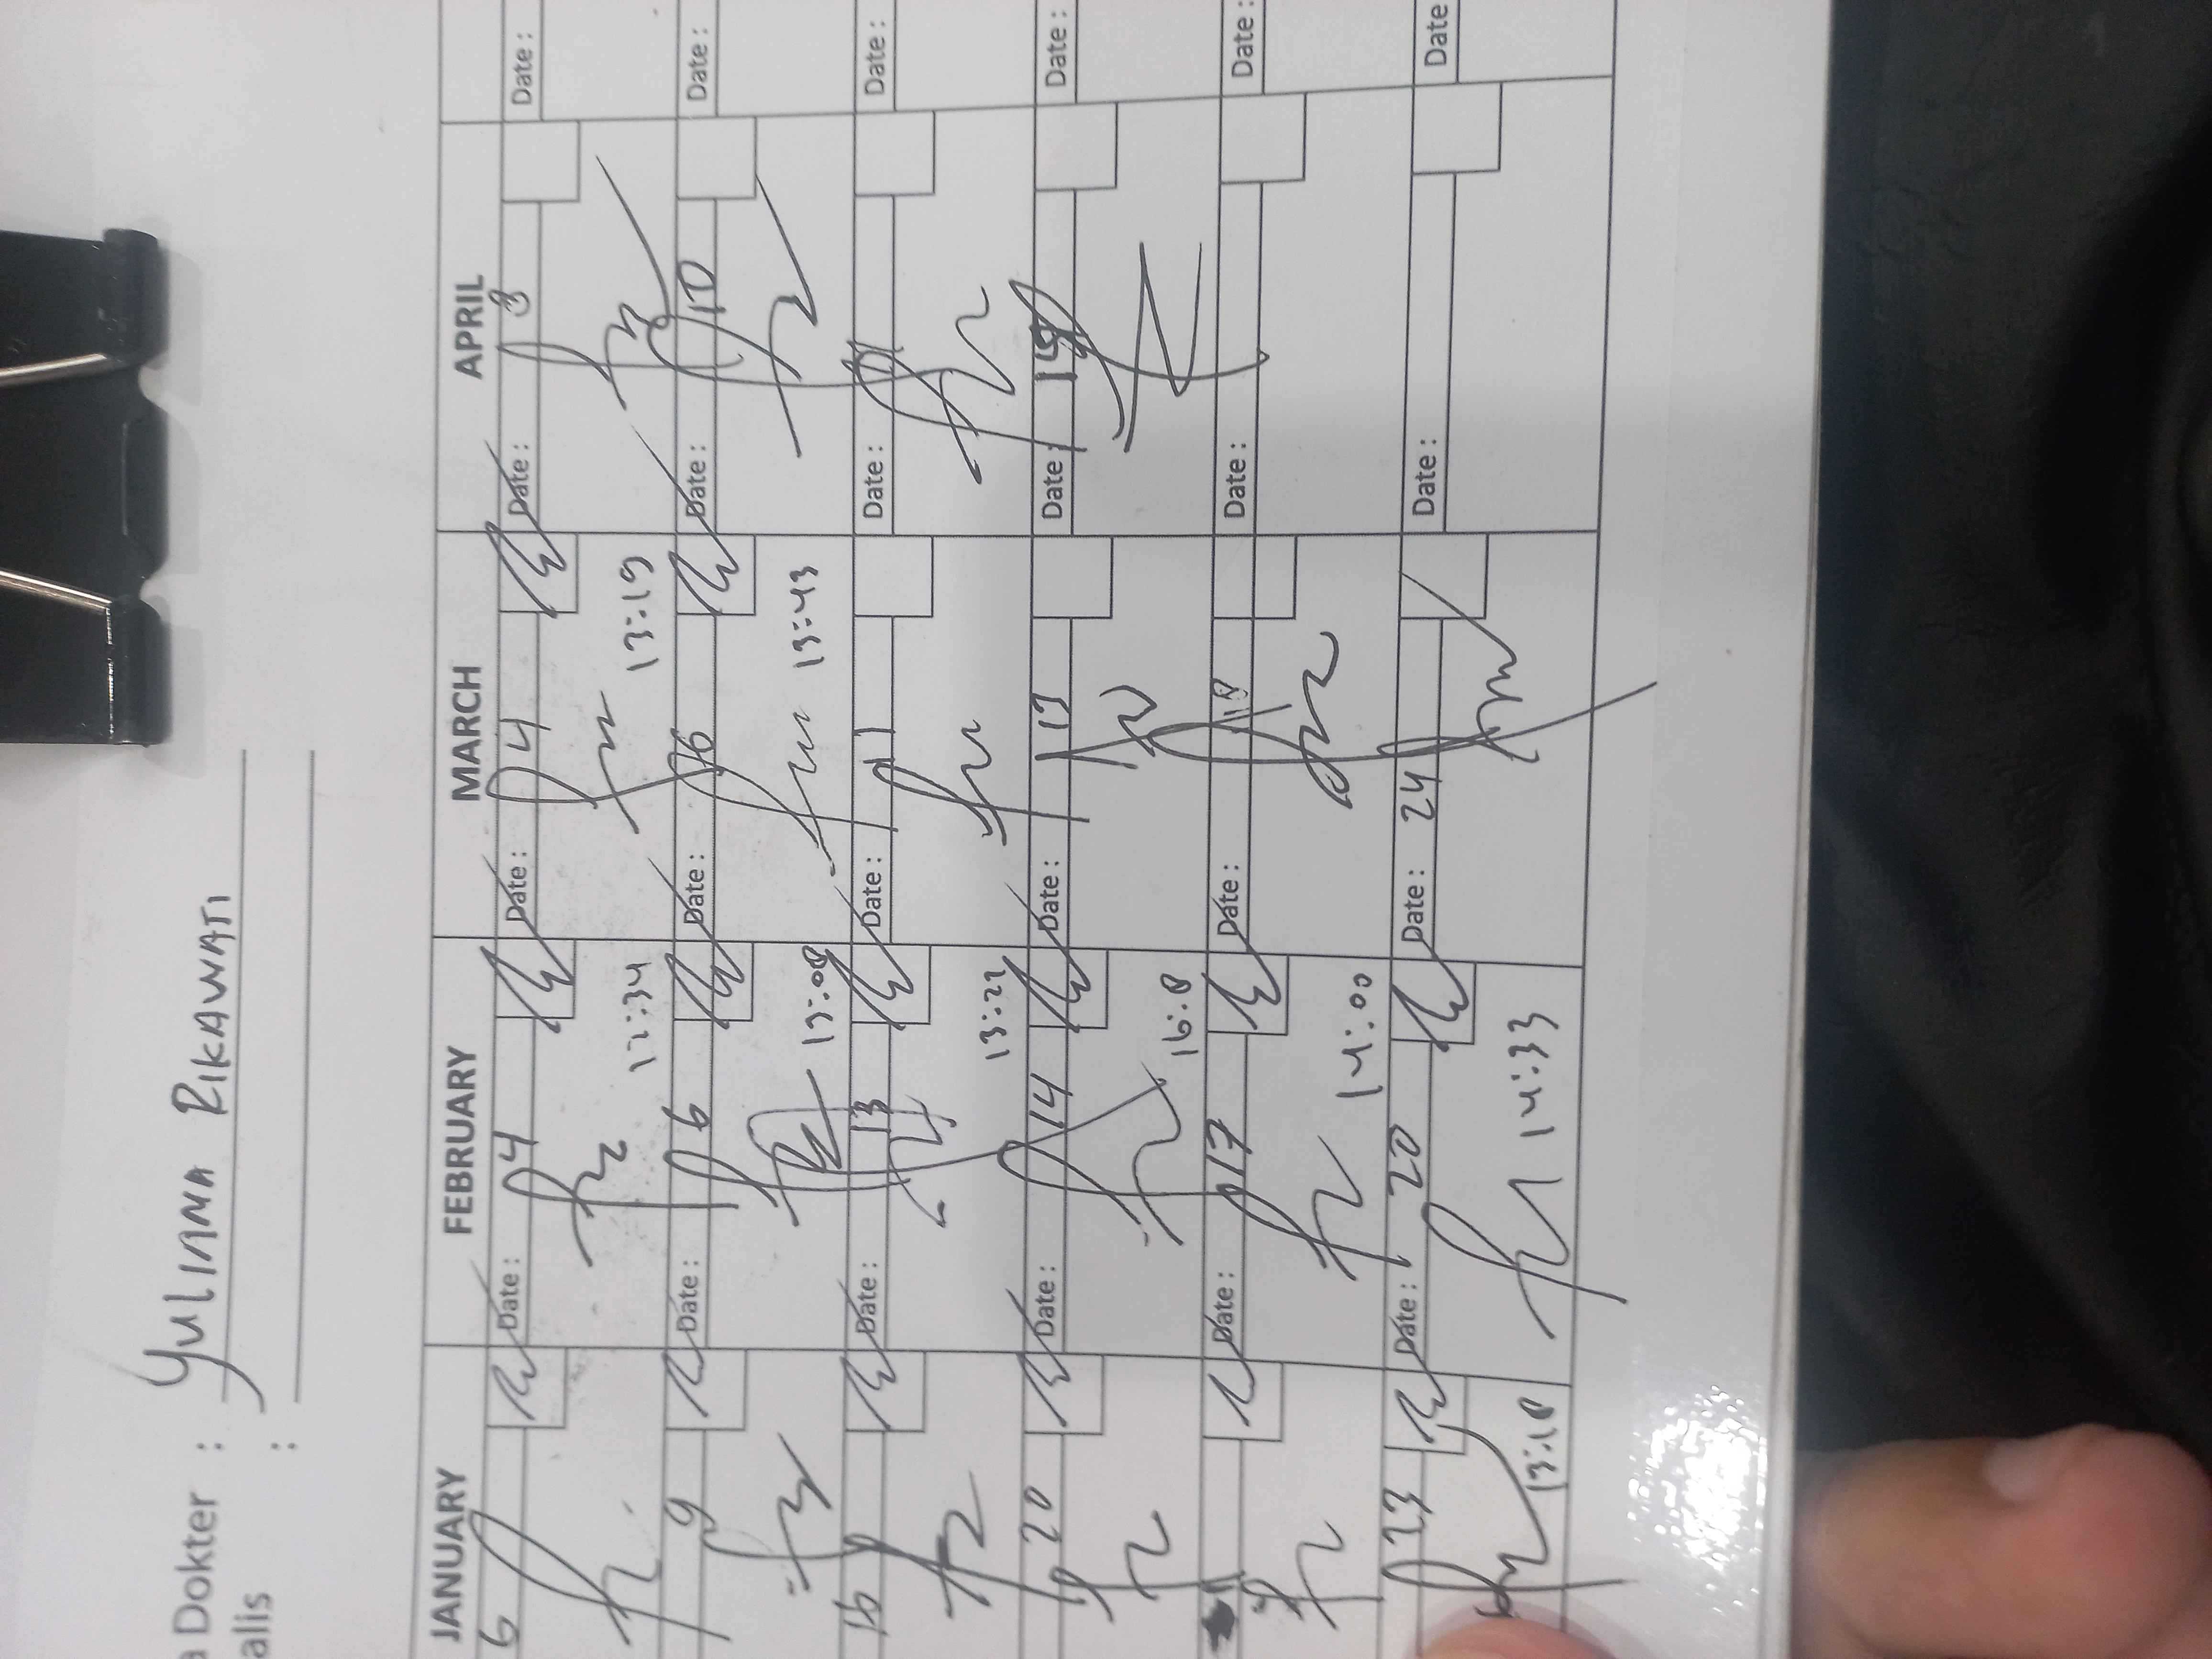 a Dokter : YULIANA RIKAWATI
alis :
JANUARY FEBRUARY MARCH APRIL
6 Date : 4 Date : 4 Date : 3 Date :
12:34 13:19
9 Date : 6 Date : 6 Date : 10 Date :
13:08 13:43
16 Date : 13 Date : 11 Date : Date :
13:22
20 Date : 14 Date : 13 Date : Date :
16:8
Date : 17 Date : 18 Date : Date :
14:00
23 Date : 20 Date : 24 Date : Date
13:18 14:33